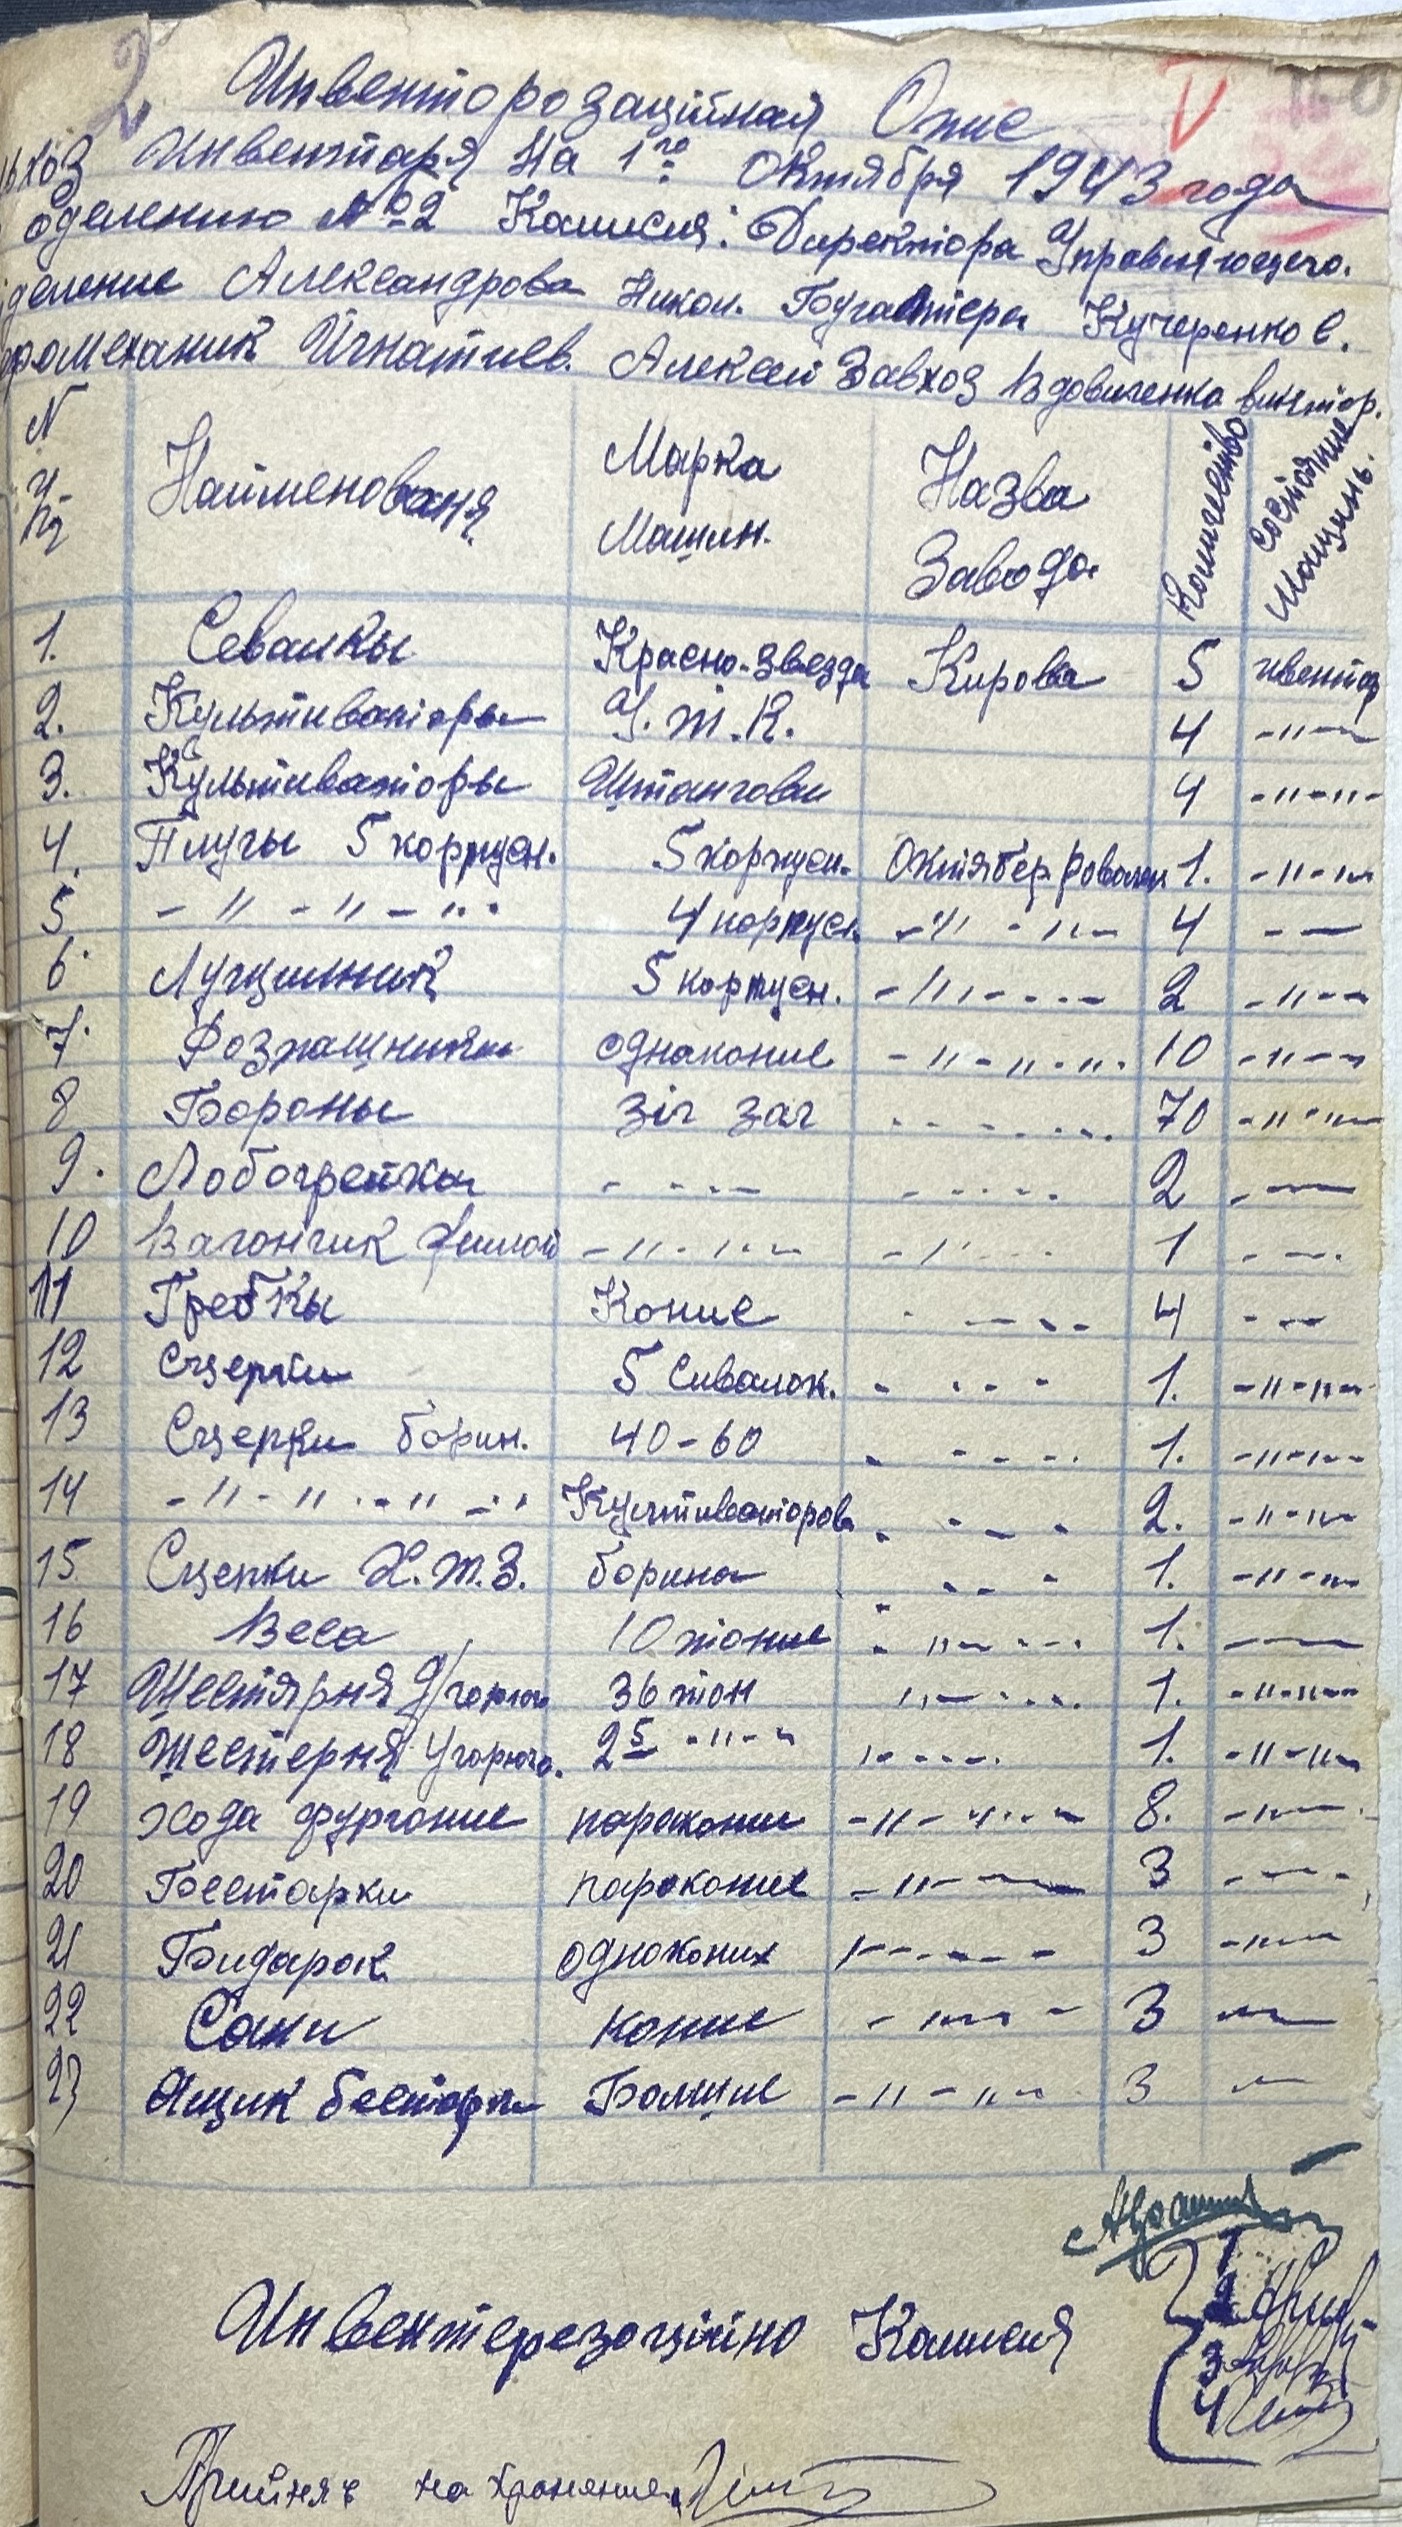 2
Инвенторозаційная Опис
хоз Инвентаря на 1го Октября 1943 года
оделению №2 Комисия: Директора Управляющего.
деление Александрова Никол. Бухгалтера Кучеренко Є.
ромеханик Игнатиев. Алексей Завхоз Вдовиченко Виктор.
N Наименованя Марка Машин. Назва Завода Количество Состояние Машинь.
1. Севалкы Красно-Звезда Кирова 5 ивентар
2. Культиваторы У.Т.К. 4 -"-
3. Культиваторы Штангови 4 -"-"-
4. Плугы 5 корпусн. 5 корпусн. 1. -"-"
5 -"-"-" 4 корпусн. -"-"- 4 - -
6. Лущильник 5 корпусн. -"- 2 -"-
7. Розпашники однакониє -"-"-". 10 -"-
8 Бороны Зіг заг 70 -"-"-
9. Лобогрейка 2 -
10 Вагончик жилой -"-"- -"- 1 -
11 Гребкы Кониє 4 - -
12 Сцепки 5 Сивалок. 1. -"-"-
13 Сцепки борин. 40-60 1. -"-"-
14 -"-"-"- Культиваторова 2. -"-"-
15 Сцепки Х.Т.З. борина 1. -"-"-
16 Веса 10 тониє 1. -
17 Шестярня 36 тон 1. -"-"-
18 Шестерня 25 -"-" 1. -"-"-
19 Хода фургониє парокониє -"-"- 8. -"-
20 Бестарки парокониє -"- 3 -
21 Бидарок одноконих 3 -"-
22 Сани кониє -"- 3 -
23 Ящик бестарки Больше -"-"- 3 -
Инвентерезоційно Комисия
1
2
3
4
Прийняв на хранение